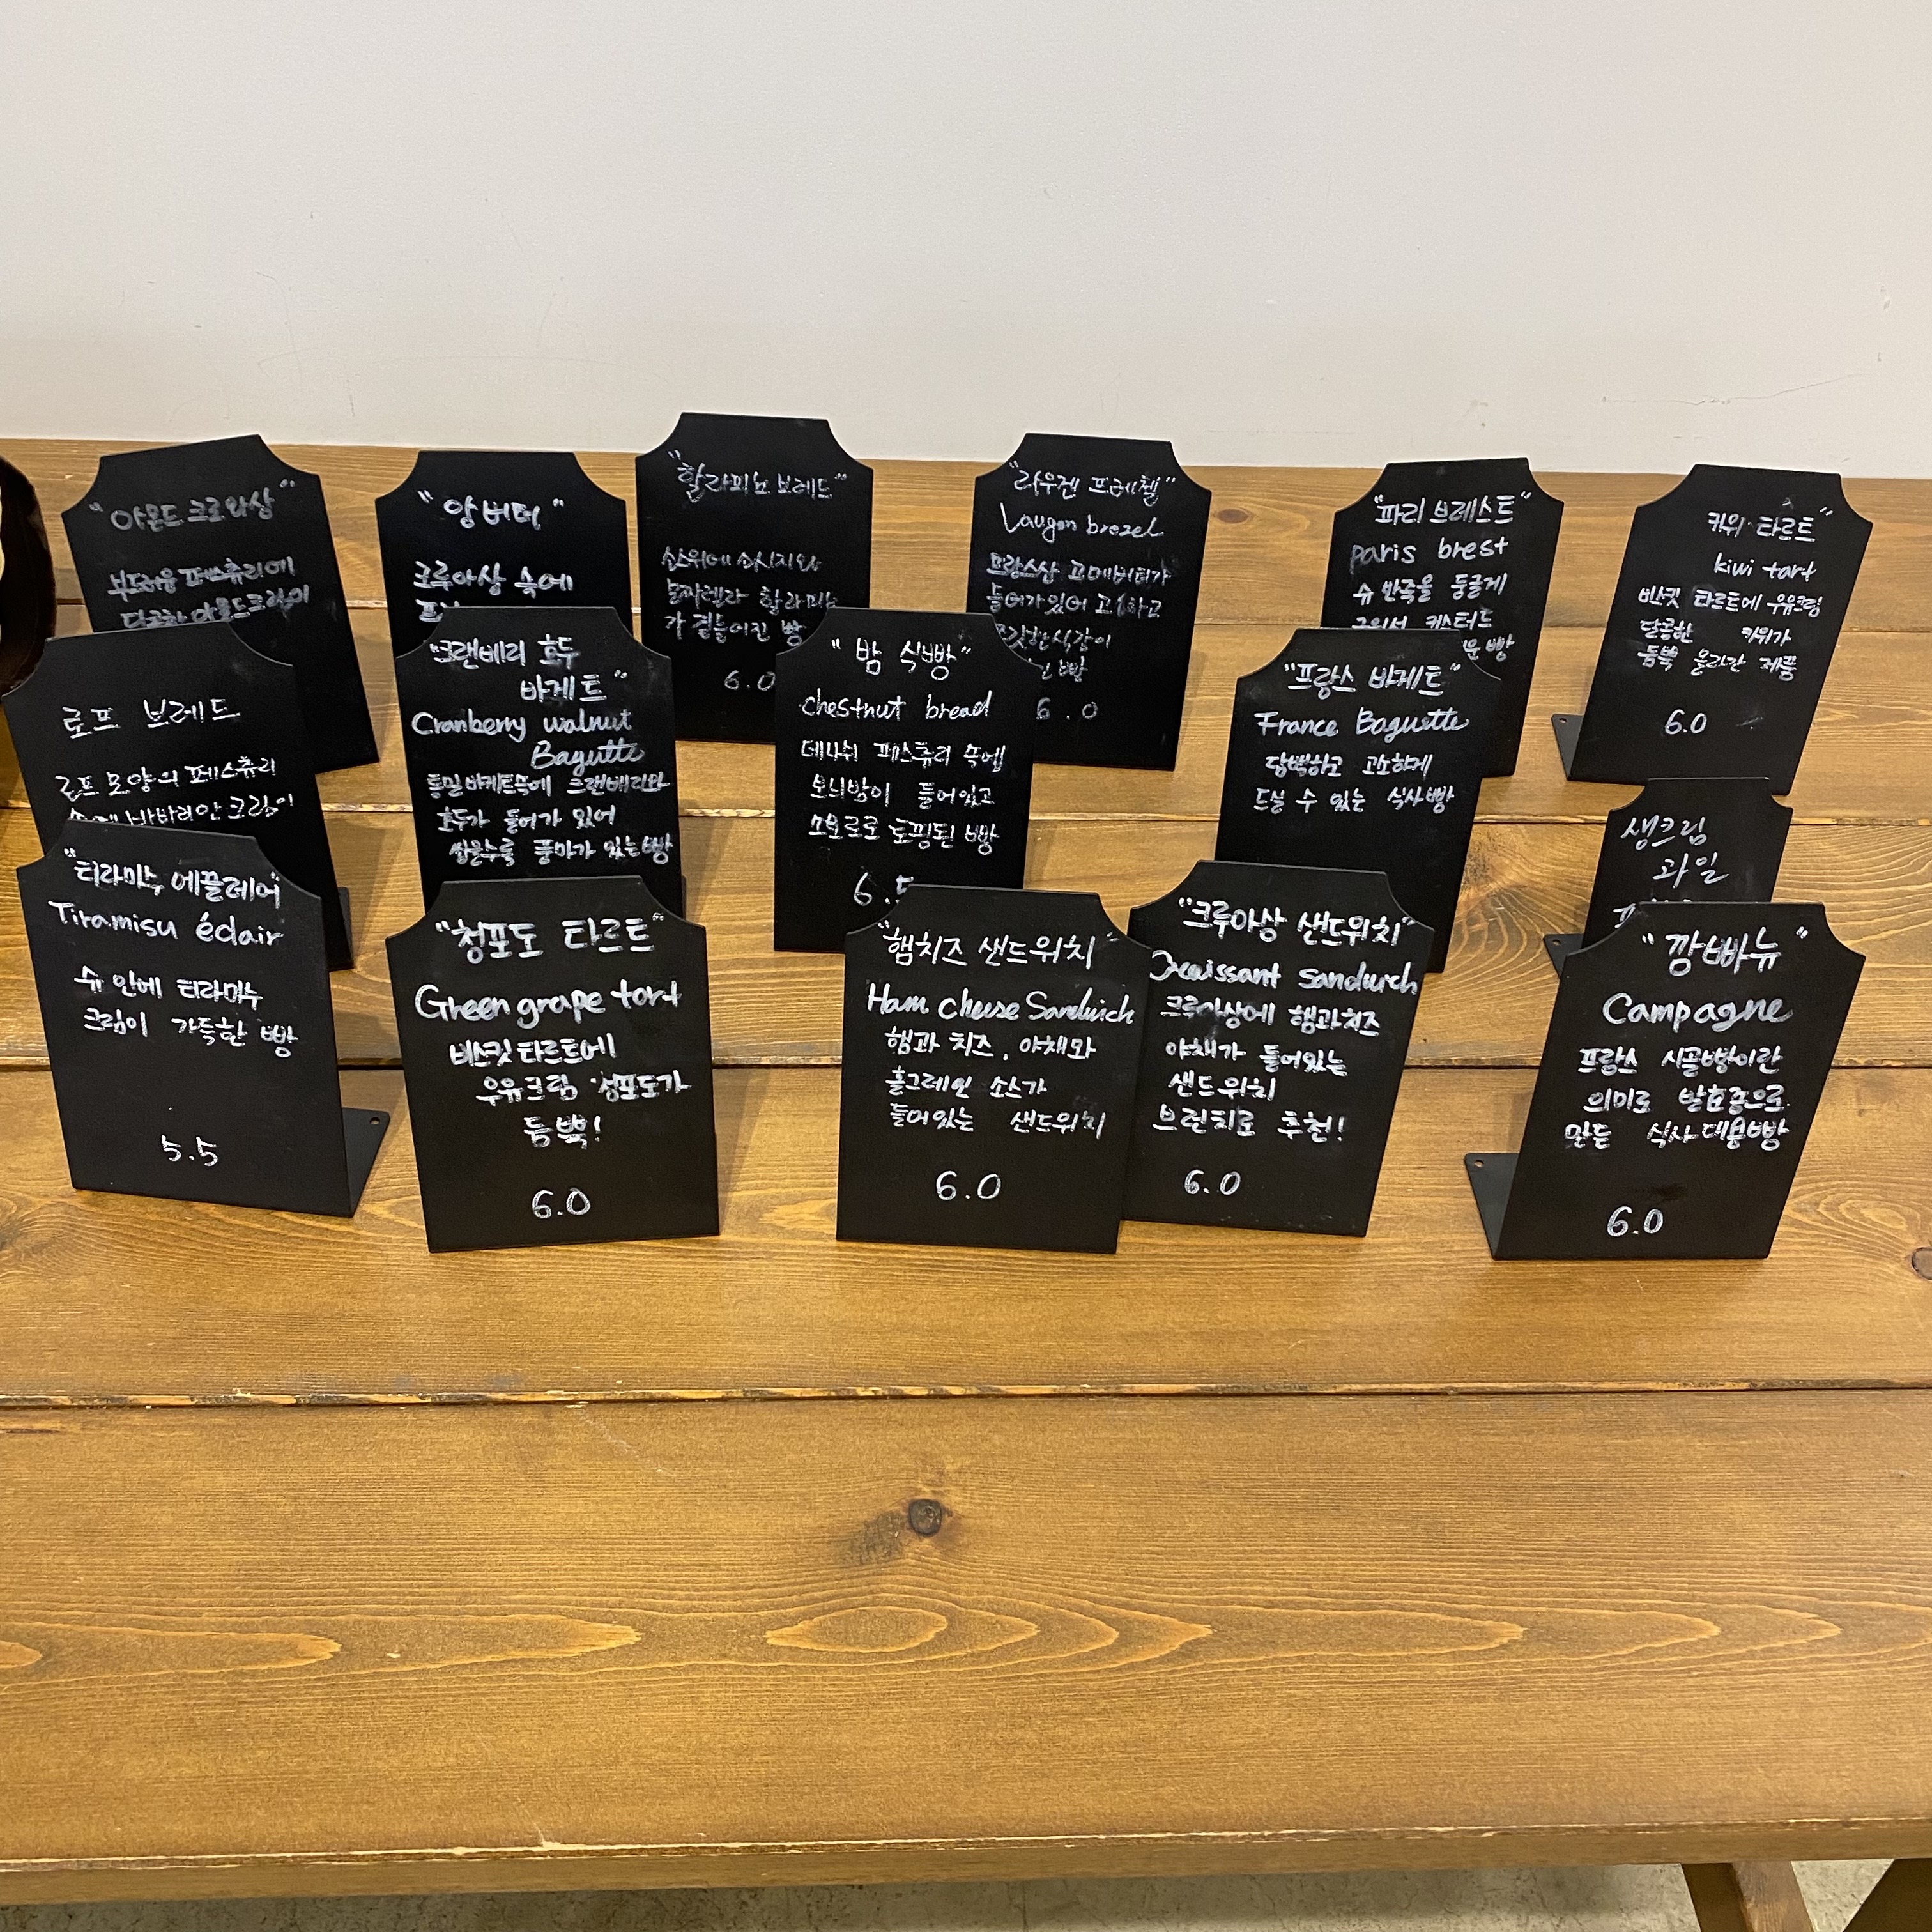 "아몬드 크로와상"
부드러운 페스츄리에
달콤한 아몬드크림이
"앙버터"
크루아상 속에
"할라피뇨 브레드"
소스위에 소시지와
모짜렐라 할라피뇨
가 곁들어진 빵
6.0
"라우겐 프레첼"
Laugen brezel
프랑스산 고메버터가
들어가있어 고소하고
쫄깃한식감이
빵
6.0
"파리 브레스트"
paris brest
슈 반죽을 둥글게
구워서 커스터드
빵
키위 타르트"
kiwi tart
비스킷 타르트에 우유크림
달콤한 키위가
듬뿍 올라간 제품
6.0
로프 브레드
로프 모양의 페스츄리
속에 바바리안 크림이
"크랜베리 호두
바게트"
Cranberry walnut
Bagutte
통밀 바게트속에 크랜베리와
호두가 들어가 있어
씹을수록 풍미가 있는 빵
"밤 식빵"
chestnut bread
데니쉬 페스츄리 속에
보늬밤이 들어있고
소보로로 토핑된 빵
6.5
"프랑스 바게트"
France Baguette
담백하고 고소하게
드실 수 있는 식사빵
생크림
과일
"티라미수 에끌레어"
Tiramisu éclair
슈 안에 티라미수
크림이 가득한 빵
5.5
"청포도 타르트"
Green grape tart
비스킷 타르트에
우유크림 청포도가
듬뿍!
6.0
"햄치즈 샌드위치"
Ham cheese Sandwich
햄과 치즈, 야채와
홀그레인 소스가
들어있는 샌드위치
6.0
"크루아상 샌드위치"
Croissant sandwich
크루아상에 햄과치즈
야채가 들어있는
샌드위치
브런치로 추천!
6.0
"깜빠뉴"
Campagne
프랑스 시골빵이란
의미로 발효종으로
만든 식사대용빵
6.0